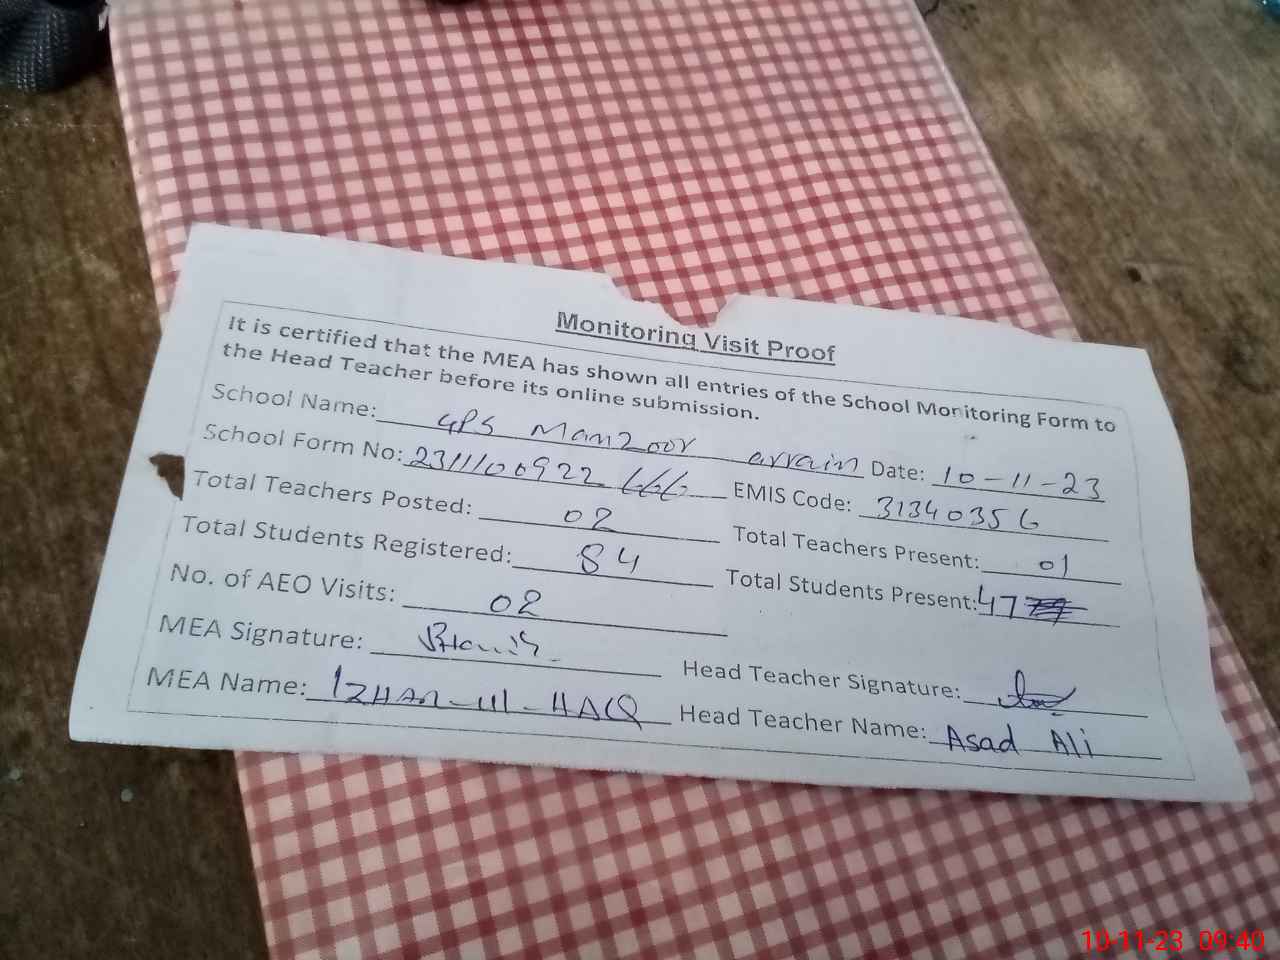 Monitoring Visit Proof
It is certified that the MEA has shown all entries of the School Monitoring Form to
the Head Teacher before its online submission.
School Name: GPS Manzoor arrain Date: 10-11-23
School Form No: 2311100922666 EMIS Code: 31340356
Total Teachers Posted: 02 Total Teachers Present: 01
Total Students Registered: 84 Total Students Present: 47
No. of AEO Visits: 02
MEA Signature: Head Teacher Signature:
MEA Name: IZHAR-Ul-HAQ Head Teacher Name: Asad Ali
10-11-23 09:40